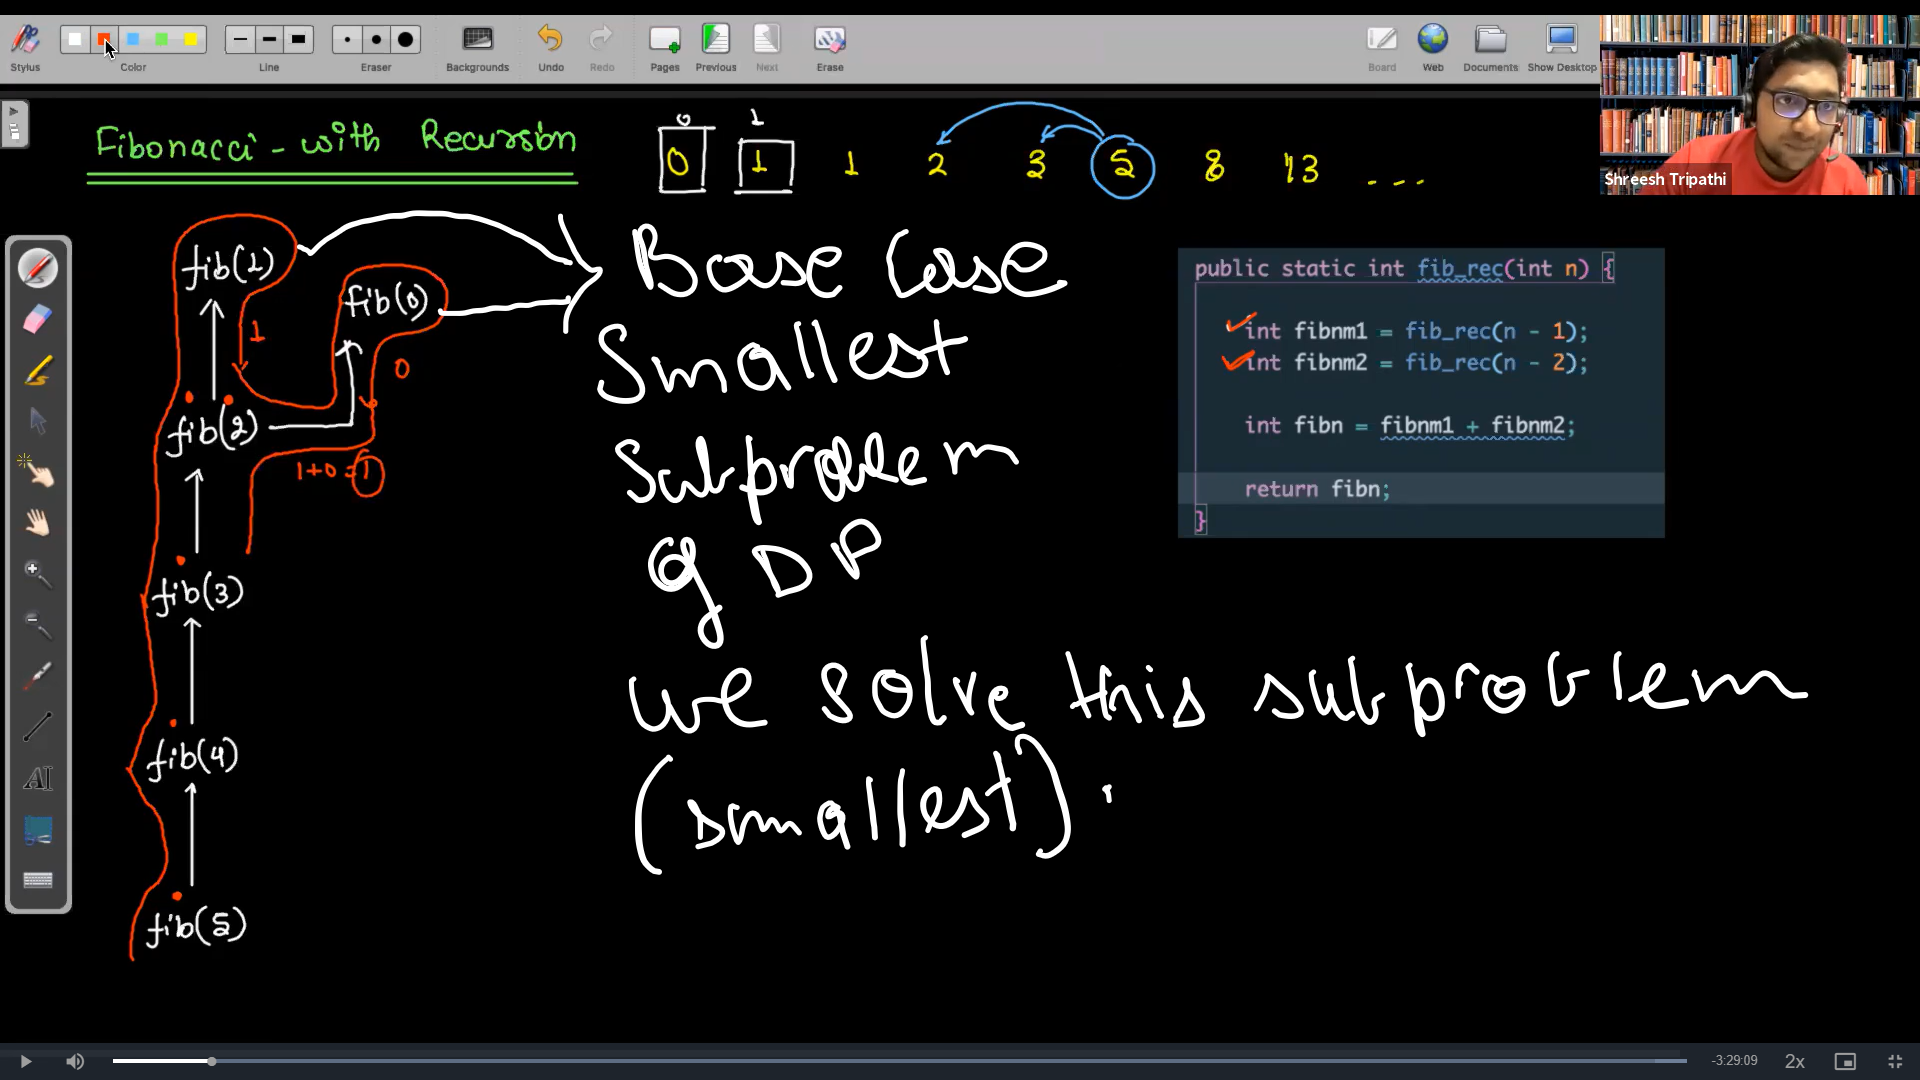 Stylus
Color
Line
Eraser
Backgrounds
Undo
Redo
Pages
Previous
Next
Erase
Board
Web
Documents
Show Desktop
Shreesh Tripathi
Fibonacci - with Recursion
0 1
0 1 1 2 3 5 8 13 ...
fib(1)
fib(0)
1
0
fib(2)
1+0=1
fib(3)
fib(4)
fib(5)
Base Case
Smallest
Subproblem
of DP
we solve this subproblem
(smallest)
public static int fib_rec(int n) {
int fibnm1 = fib_rec(n - 1);
int fibnm2 = fib_rec(n - 2);
int fibn = fibnm1 + fibnm2;
return fibn;
}
AI
-3:29:09
2x